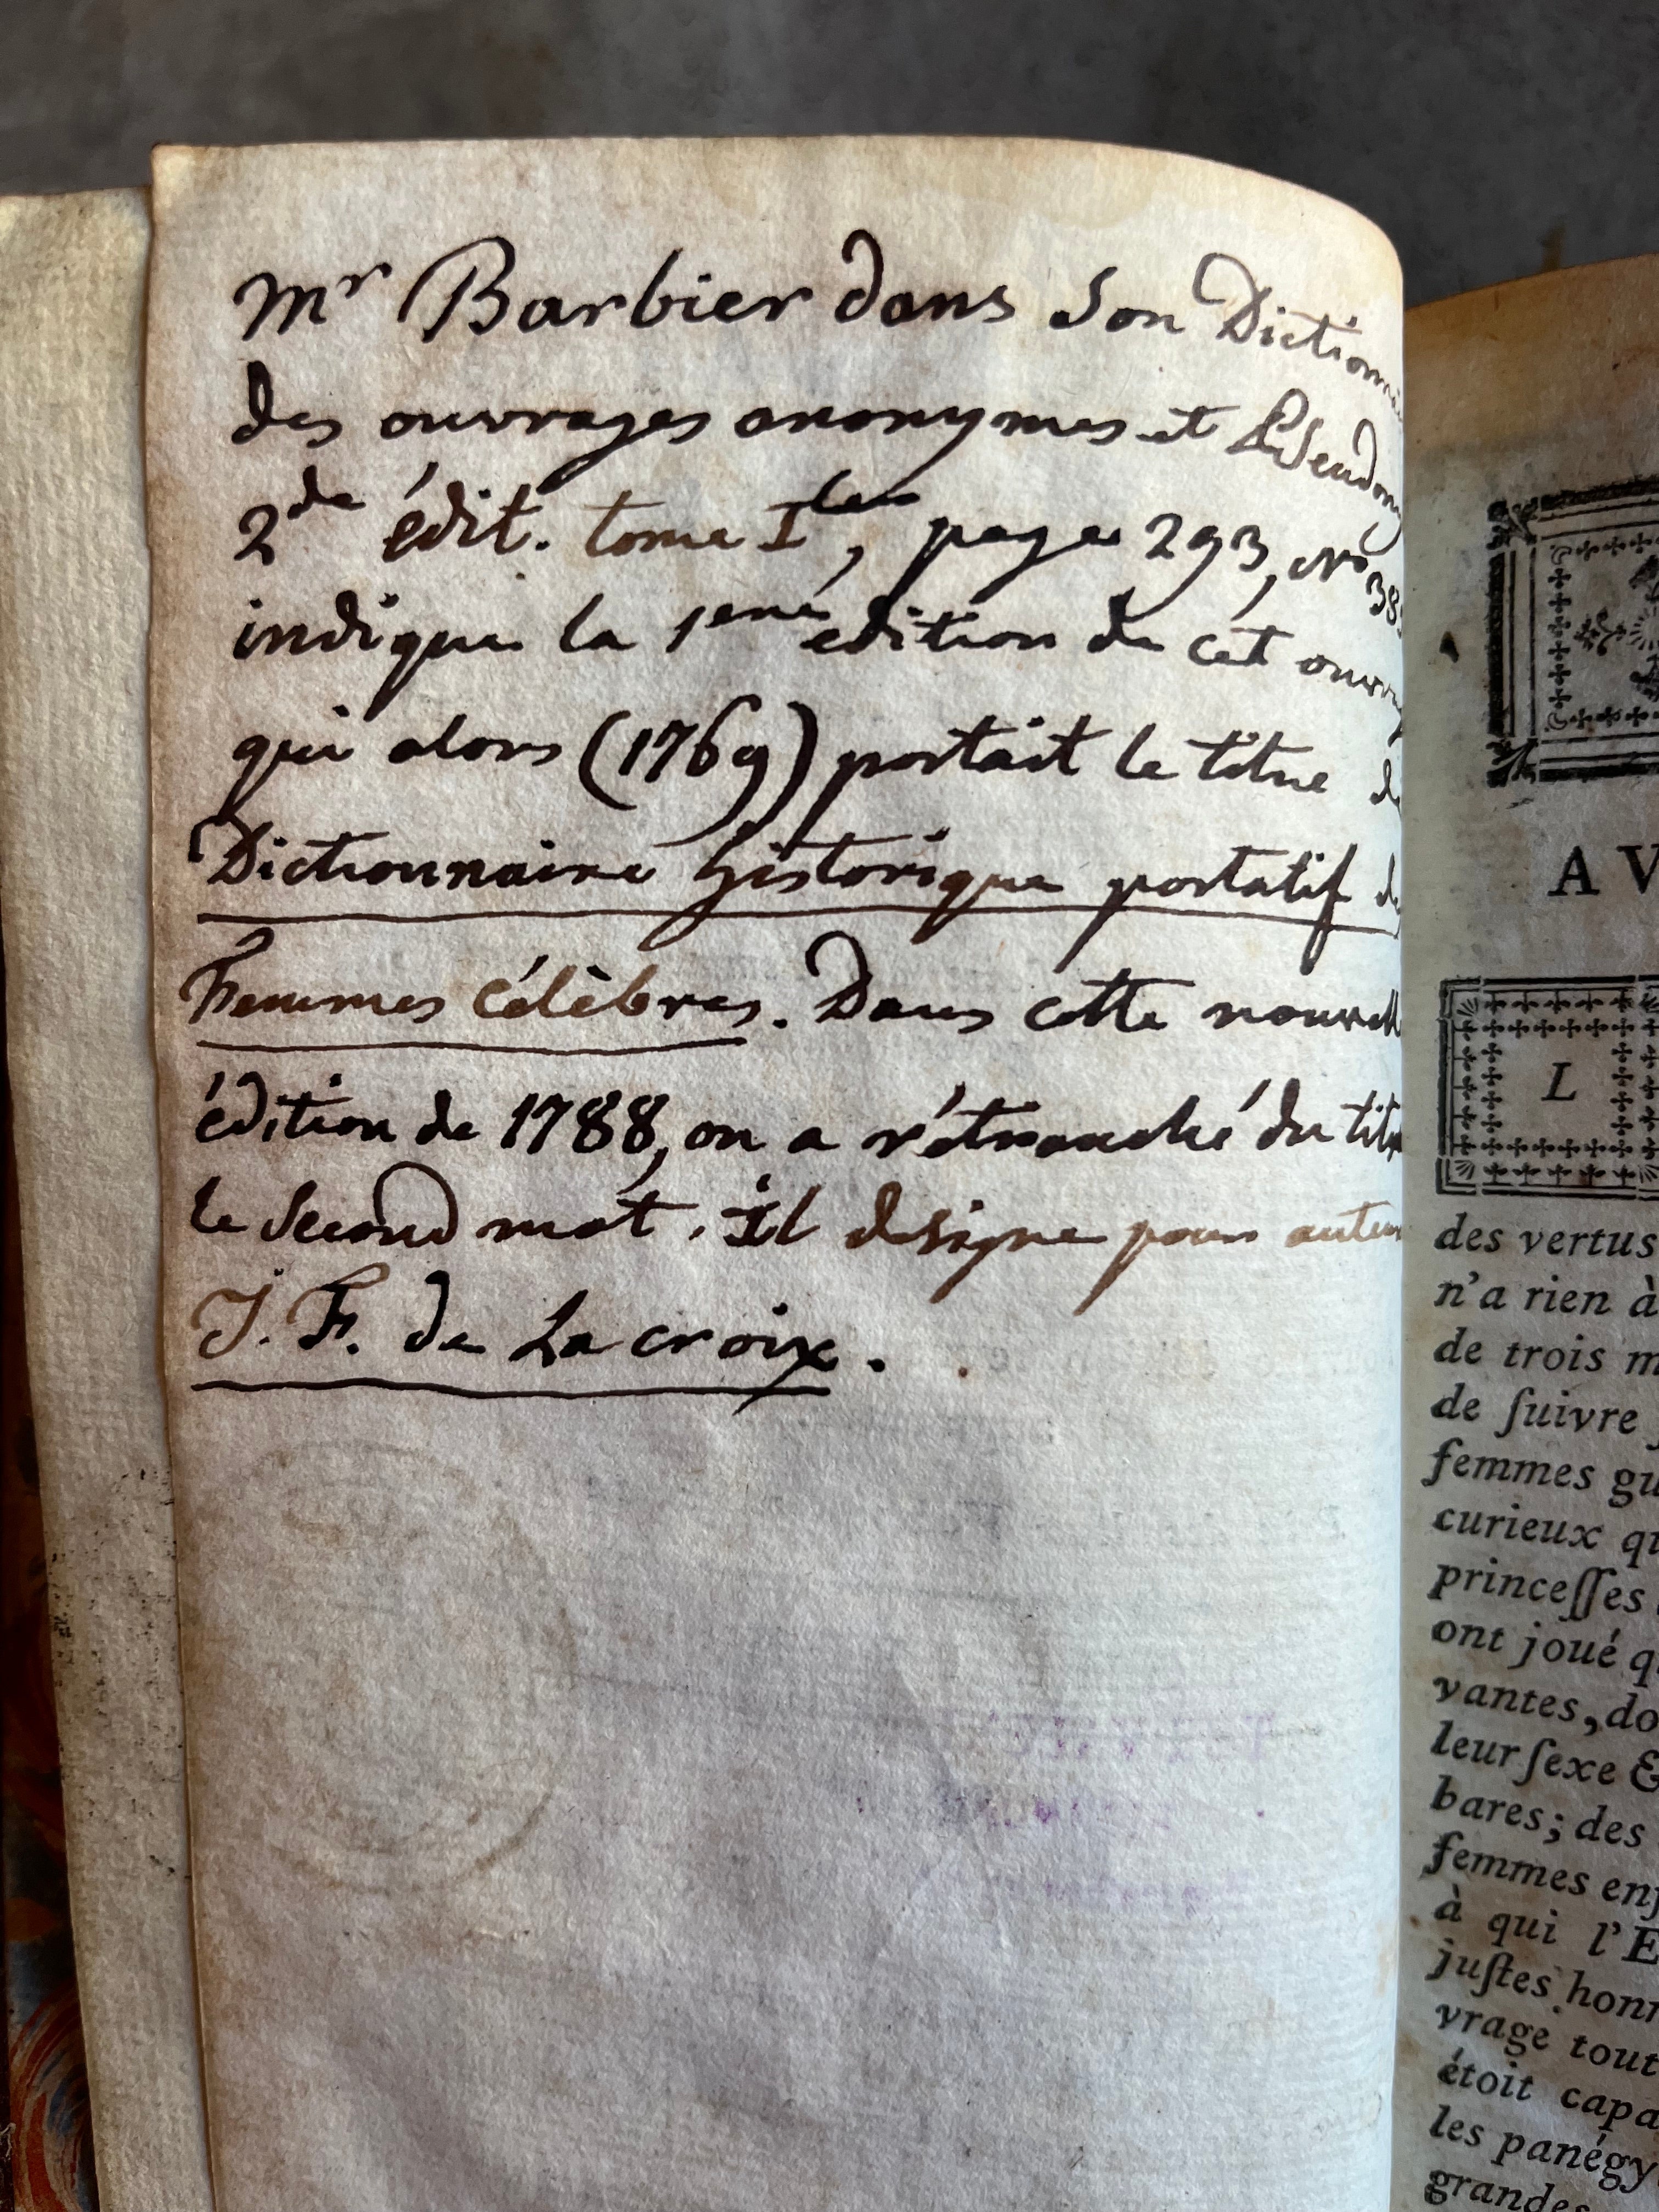 Mr Barbier dans Son Dictionnai
des ouvrages anonymes et PSeudony
2de édit. tome Ier, page 293, No 38
indique la 1ere édition de cet ouvrag
qui alors (1769) portait le titre de
Dictionnaire historique portatif de
Femmes célèbres. Dans cette nouvell
édition de 1788, on a rétranché du titr
le Second mot. Il désigne pour auteur
J. F. de La croix.
AV
L
des vertus
n'a rien à
de trois m
de ſuivre
femmes gu
curieux qu
princeſſes
ont joué q
vantes, do
leur ſexe &
bares; des
femmes enf
à qui l'E
juſtes honn
vrage tout
étoit capa
les panégy
grandes